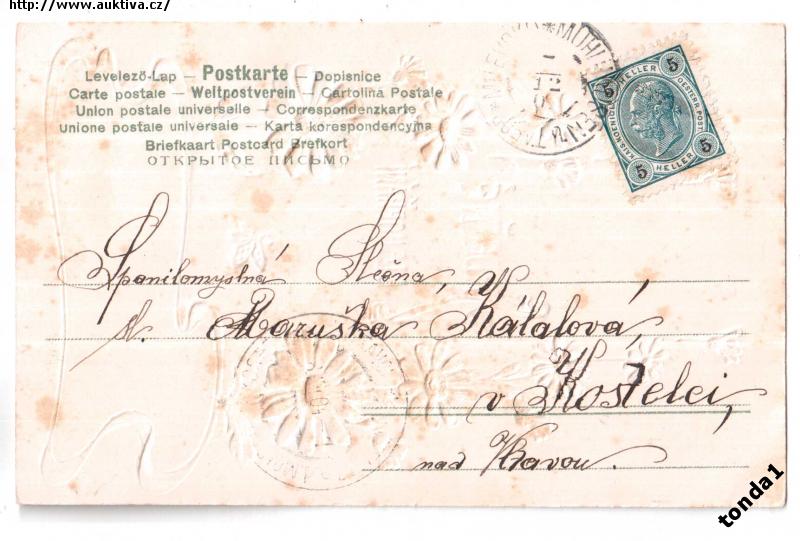 http://www.auktiva.cz/
Levelező-Lap – Postkarte – Dopisnice
Carte postale – Weltpostverein – Cartolina Postale
Union postale universelle – Correspondenzkarte
Unione postale universale – Karta korespondencyjna
Briefkaart Postcard Brefkort
ОТКРЫТОЕ ПИСЬМО
5 HELLER 5
KAIS. KÖNIGL. OESTERR. POST
5 HELLER 5
Spanilomyslná Slečna,
sl. Maruška Kálalová,
v Kostelci,
nad Vltavou.
tonda1